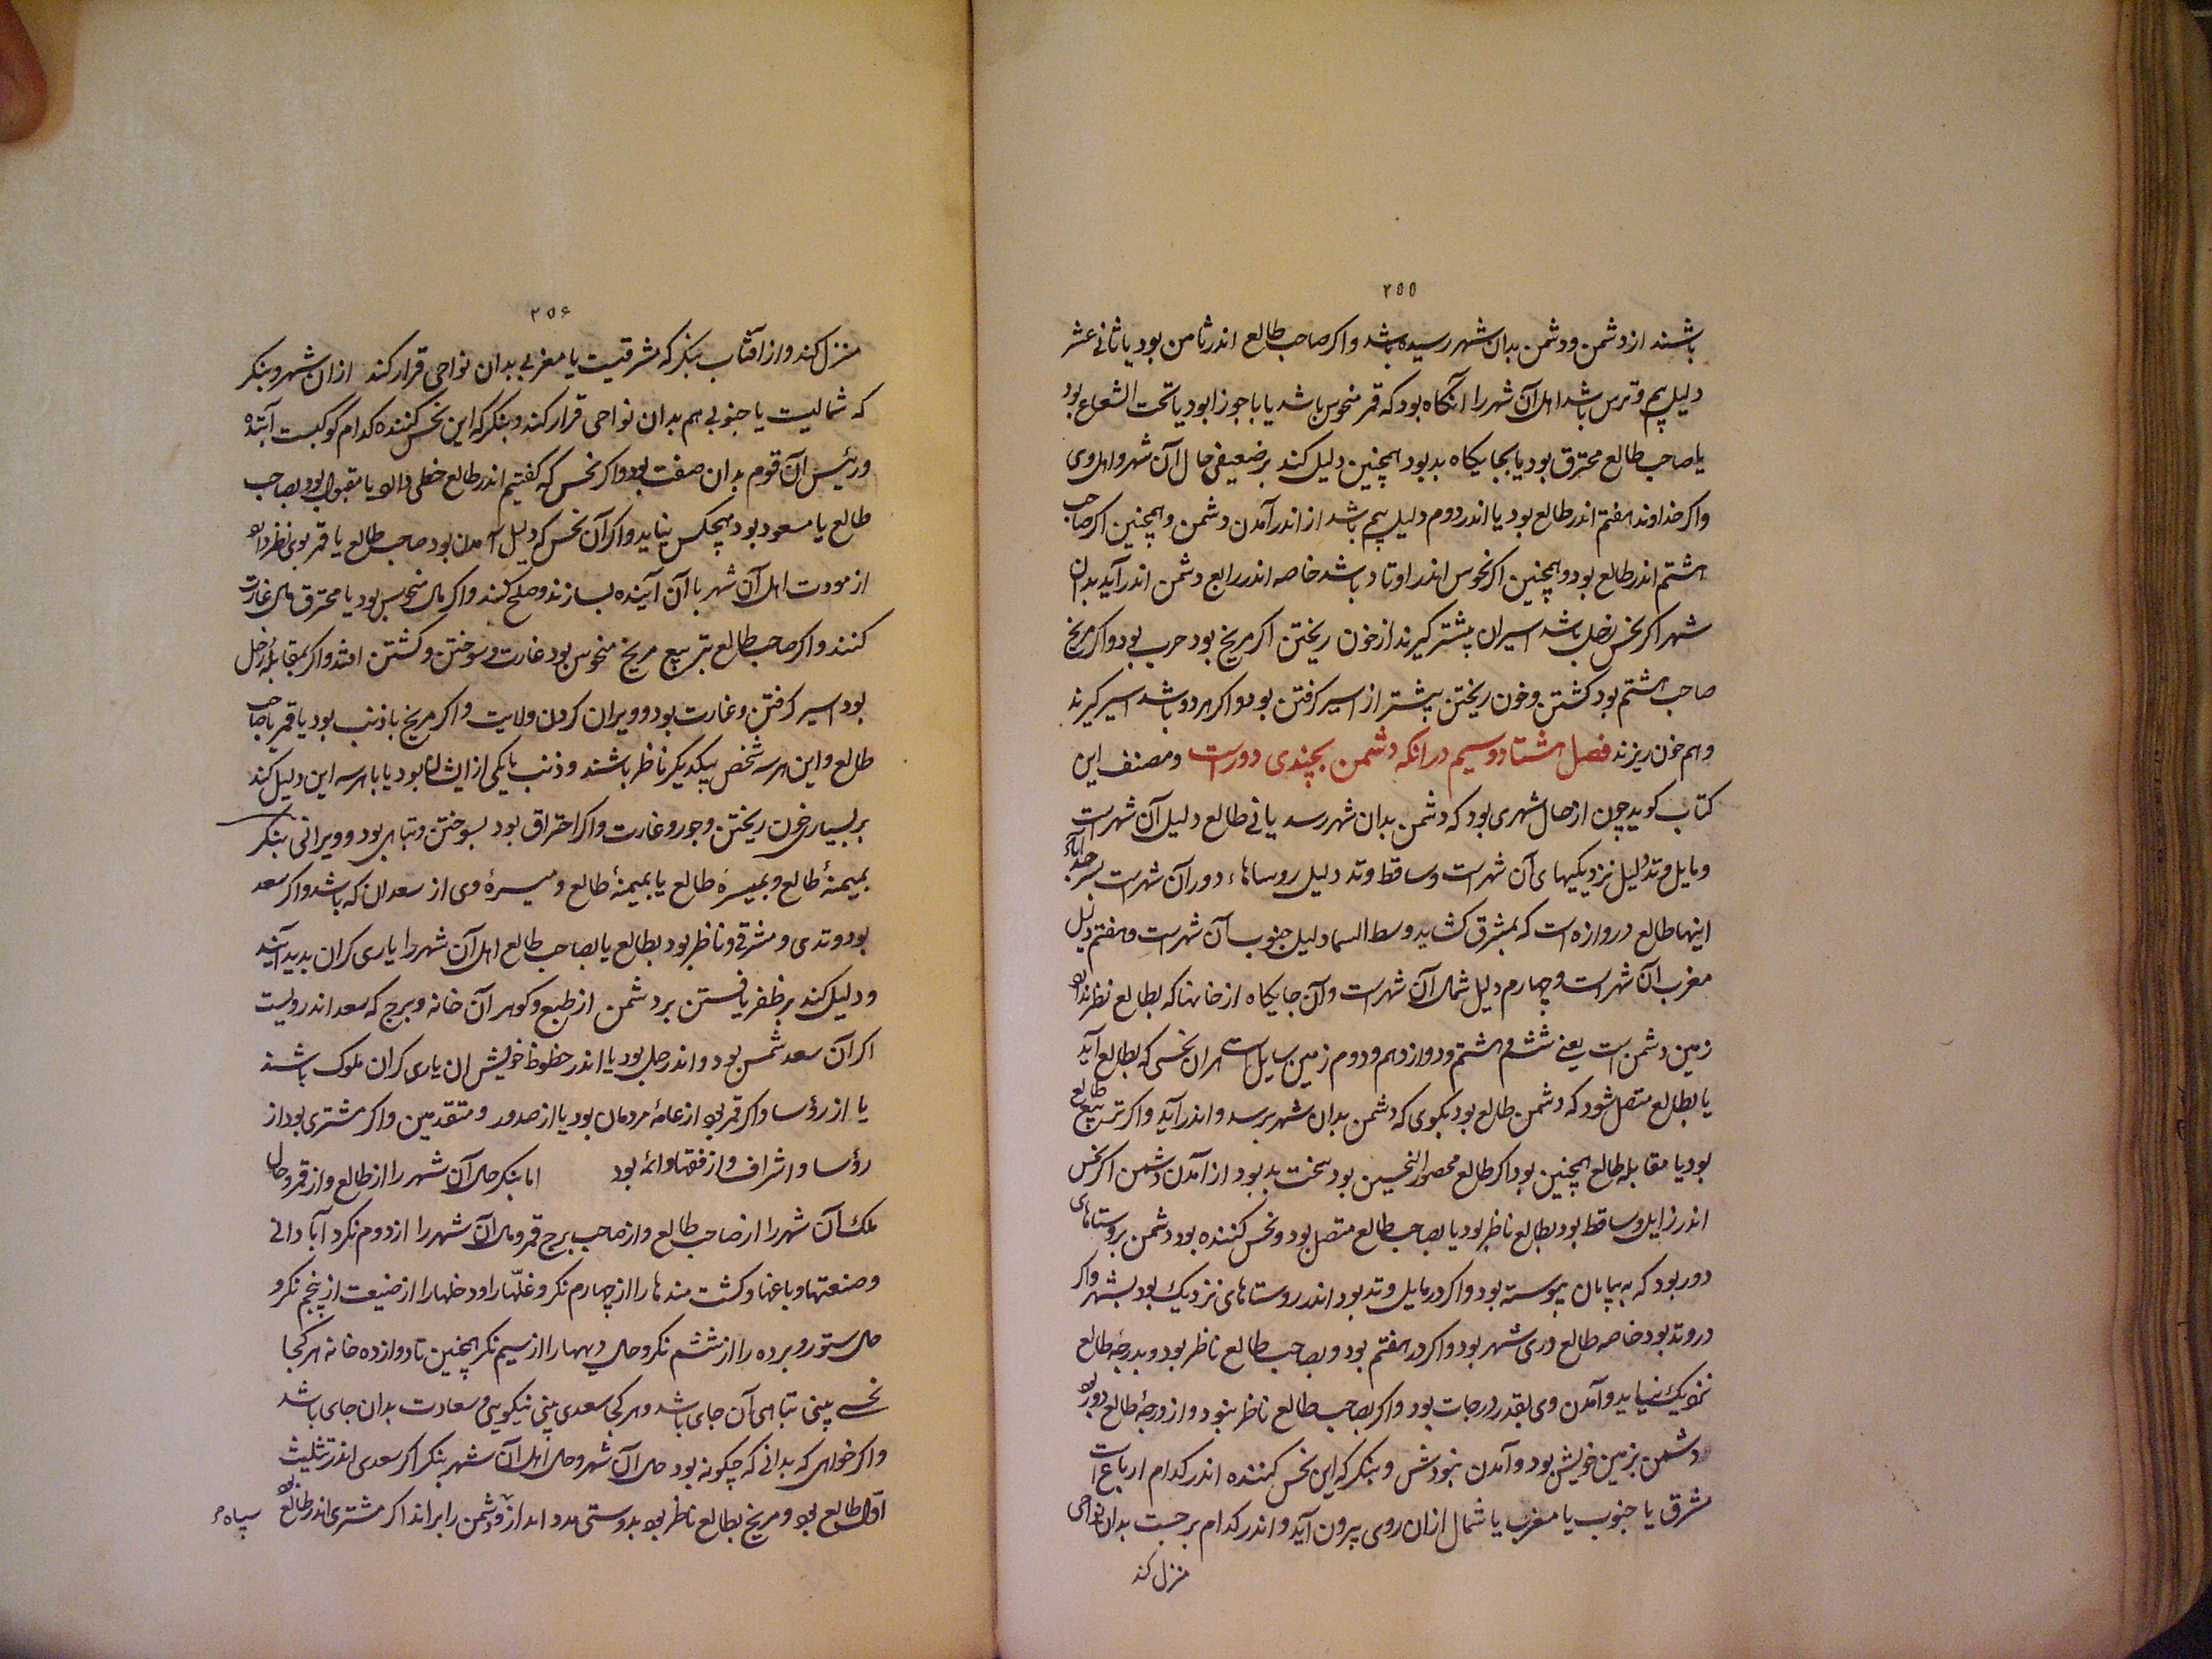 ۲۵۵
باشند از دشمن و دشمن بدان شهر رسیده باشد و اکر صاحب طالع اندر ثامن بود یا ثانی عشر
دلیل بیم و ترس باشد اهل آن شهر را آنکاه بود که قمر منحوس باشد یا با جوزا بود یا تحت الشعاع بود
یا صاحب طالع محترق بود یا بجایکاه بد بود همچنین دلیل کند بر ضعیفی حال آن شهر و اهل وی
و اکر خداوند هفتم اندر طالع بود یا اندر دوم دلیل بیم باشد از اندر آمدن دشمن و همچنین اکر صاحب
هشتم اندر طالع بود و همچنین اکر نحوس اندر اوتاد باشد خاصه اندر رابع دشمن اندر آید بدان
شهر اکر نحس زحل باشد اسیران بیشتر کیرند از خون ریختن اکر مریخ بود حرب بود و اکر مریخ
صاحب هشتم بود کشتن و خون ریختن بیشتر از اسیر کرفتن بود و اکر هر دو باشد اسیر کیرند
و هم خون ریزند فصل هشتاد و سیم در انکه دشمن بچندی دورست و مصنف این
کتاب کوید چون از حال شهری بود که دشمن بدان شهر رسد یا نی طالع دلیل آن شهرست
و مایل وتد دلیل نزدیکیهای آن شهرست و ساقط وتد دلیل روساهاء دور آن شهرست
اینها طالع دروازه است که بمشرق کشاید وسط السما دلیل جنوب آن شهرست و هفتم دلیل
مغرب آن شهرست و چهارم دلیل شمال آن شهرست و آن جایکاه از خانها که بطالع نظر ندارد
زمین دشمن است یعنی ششم و هشتم و دوازدهم و دوم زمین سایل است هران نحسی که بطالع آید
یا بطالع متصل شود که دشمن طالع بود بکوی که دشمن بدان شهر برسد و اندر آید و اکر تربیع طالع
بود یا مقابله طالع همچنین بود اکر طالع محصور النحسین بود سخت بد بود از آمدن دشمن اکر نحس
اندر زایل و ساقط بود بطالع ناظر بود یا بصاحب طالع متصل بود و نحس کننده بود دشمن بروستاهای
دور بود که ببیابان پیوسته بود و اکر در مایل وتد بود اندر روستاهای نزدیک بود بشهر و اکر
در وتد بود خاصه طالع دری شهر بود و اکر در هفتم بود و بصاحب طالع ناظر بود و بدرجهٔ طالع
نزدیک نیاید و آمدن وی بقدر درجات بود و اکر بصاحب طالع ناظر نبود و از درجهٔ طالع دور بود
دشمن بزمین خویش بود و آمدن نبودش و بنکر که این نحس کننده اندر کدام ارباع است
مشرق یا جنوب یا مغرب یا شمال ازان روی بیرون آید و اندر کدام برجست بدان نواحی
منزل کند
۲۵۶
منزل کند و از افتاب بنکر که مشرقیست یا مغربی بدان نواحی قرار کند ازان شهر و بنکر
که شمالیست یا جنوبی هم بدان نواحی قرار کند و بنکر که این نحس کننده کدام کوکبست آینده
و رئیس آن قوم بدان صفت بود و اکر نحس که کفتیم اندر طالع خطی دارد یا مقبول بود بصاحب
طالع یا مسعود بود هیچکس نیاید و اکر آن نحس که دلیل آمدن بود صاحب طالع یا قمر بوی نظر دارد
از مودت اهل آن شهر با آن آینده بسازند و صلح کنند و اکر مال منحوس بود یا محترق مال غارت
کنند و اکر صاحب طالع بتربیع مریخ منحوس بود غارت و سوختن و کشتن افتد و اکر بمقابلهٔ زحل
بود اسیر کرفتن و غارت بود و ویران کردن ولایت و اکر مریخ با ذنب بود یا قمر با صاحب
طالع و این هر سه شخص بیکدیکر ناظر باشند و ذنب با یکی از ایشان بود یا با هر سه این دلیل کند
بر بسیار خون ریختن و جور و غارت و اکر احتراق بود بسوختن و تباهی بود و ویرانی بنکر
بمیمنهٔ طالع و بمیسرهٔ طالع یا بمیمنهٔ طالع و میسرهٔ وی از سعدان که باشد و اکر سعد
بود وتدی و مشرقی و ناظر بود بطالع یا بصاحب طالع اهل آن شهر را یاری کران بدید آیند
و دلیل کند بر ظفر یافتن بر دشمن از طبع و کوهر آن خانه و برج که سعد اندرویست
اکر آن سعد شمس بود و اندر حمل بود یا اندر حظوظ خویش ان یاری کران ملوک باشند
یا از رؤسا و اکر قمر بود از عامهٔ مردمان بود یا از صدور و متقدمین و اکر مشتری بود از
رؤسا و اشراف و از فقها و ائمه بود اما بنکر حال آن شهر را از طالع و از قمر و حال
ملک آن شهر را از صاحب طالع و از صاحب برج قمر و مال آن شهر را از دوم نکر و آبادانی
و صنعتها و باغها و کشت مندها را از چهارم نکر و غلّها را و دخلها را از ضیعت از پنجم نکر و
حال ستور و برده را از ششم نکر و حال دیهها را از سیم نکر همچنین تا دوازده خانه هر کجا
نحسی بینی تباهی آن جای باشد و هر کجا سعدی بینی نیکویی و سعادت بدان جای باشد
و اکر خواهی که بدانی که چکونه بود حال آن شهر و حال اهل آن شهر بنکر اکر سعدی اندر تثلیث
اوّل طالع بود و مریخ بطالع ناظر بود بدوستی مدد دارد و دشمن را براند اکر مشتری اندر طالع بود
سپاه